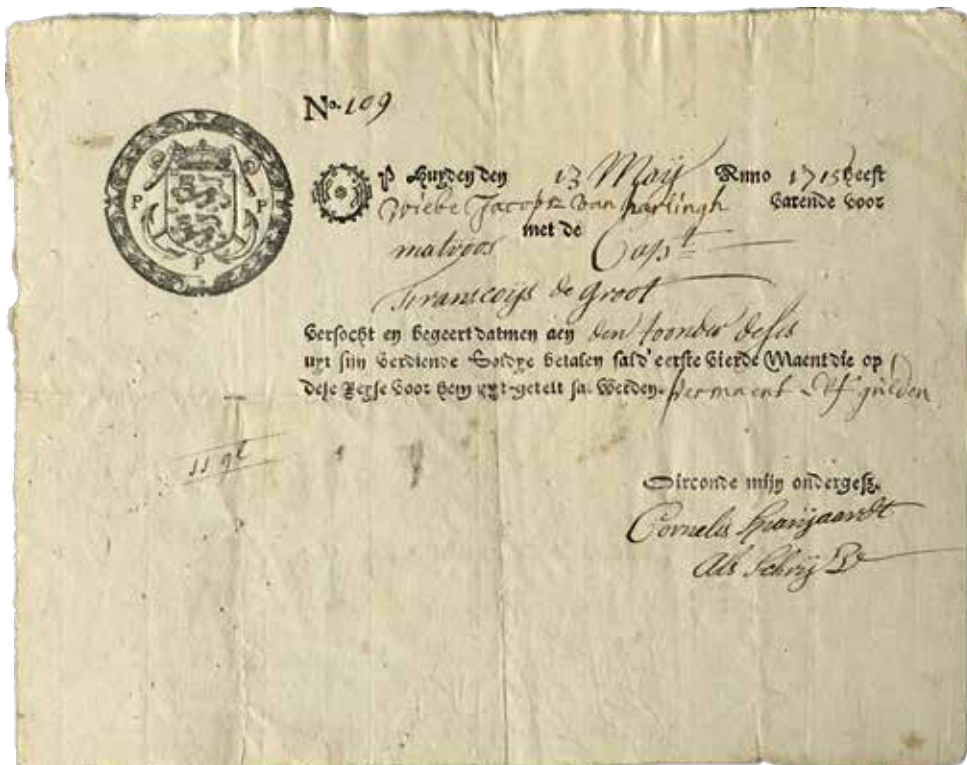 No. 109
P P P
Op Huyden den 13 Maij Anno 1715 heeft
Wiebe Jacobsz van harlingh Varende voor
matroos met de Capt
Franscoijs de Groot
Versocht en begeert datmen aen den toonder deses
uyt sijn Verdiende Soldye betalen sal d'eerste vierde Maent die op
dese Reyse voor hem uyt-getelt sal Werden. per maent 11 gulden
11 gl
Oirconde mijn ondergesz.
Cornelis
Als Schrijvr